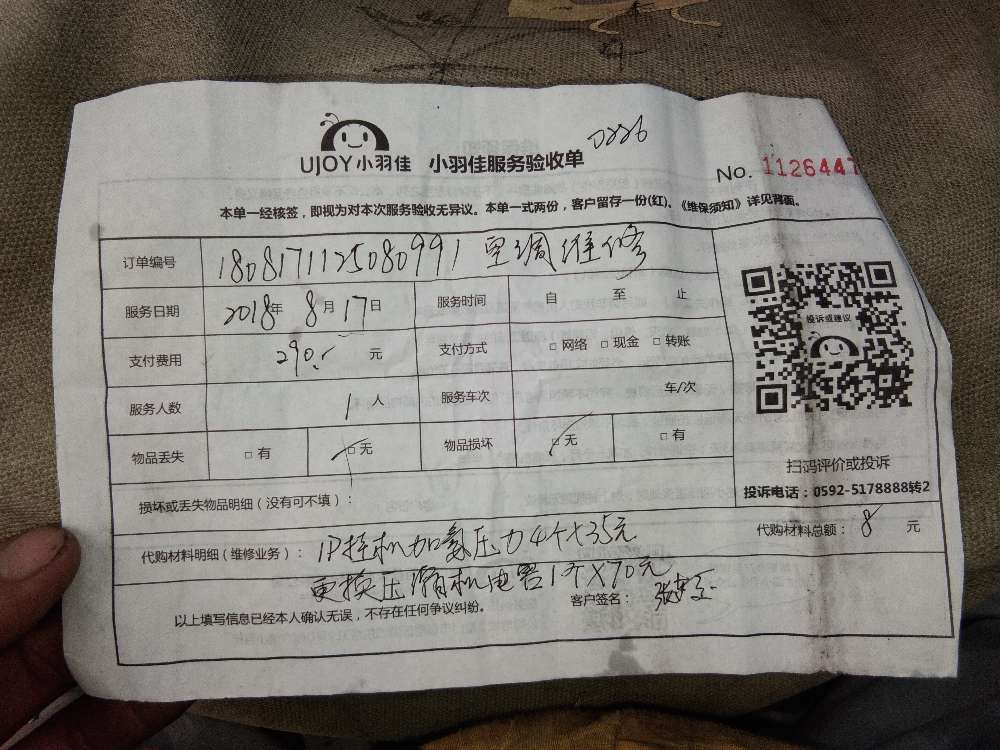 UJOY小羽佳 小羽佳服务验收单 0226
No. 1126447
本单一经核签，即视为对本次服务验收无异议。本单一式两份，客户留存一份(红)。《维保须知》详见背面。
订单编号 1808171125080991 空调维修
服务日期 2018年 8月17日 服务时间 自 至 止
投诉或建议
支付费用 290.- 元 支付方式 □ 网络 □ 现金 □ 转账
服务人数 1 人 服务车次 车/次
物品丢失 □ 有 □ 无 物品损坏 □ 无 □ 有
扫码评价或投诉
投诉电话：0592-5178888转2
损坏或丢失物品明细（没有可不填）：
代购材料明细（维修业务）： 1P挂机加氨压力4个X35元 代购材料总额： 8 元
更换压缩机电容1个X70元
以上填写信息已经本人确认无误，不存在任何争议纠纷。 客户签名：